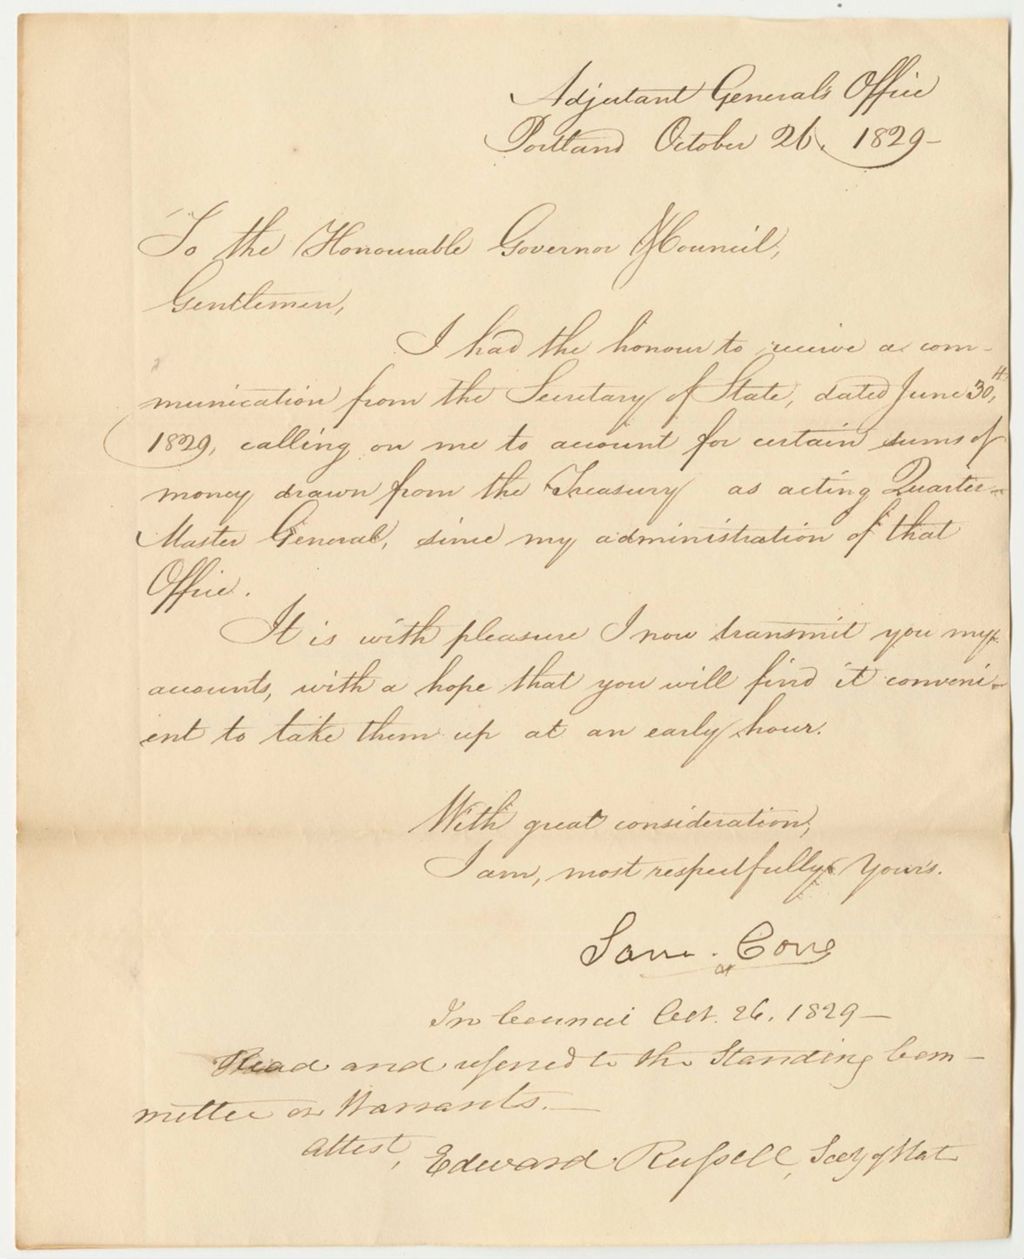 Adjutant General's Office
Portland October 26, 1829-
To the Honourable Governor & Council,
Gentlemen,
I had the honour to receive a com-
munication from the Secretary of State, dated June 30th,
1829, calling on me to account for certain sums of
money drawn from the Treasury as acting Quarter-
Master General, since my administration of that
Office.
It is with pleasure I now transmit you my
accounts, with a hope that you will find it conveni-
ent to take them up at an early hour.
With great consideration,
I am, most respectfully Yours.
Sam. Cony
In Council Oct. 26, 1829-
Read and referred to the Standing Com-
mittee on Warrants.-
attest, Edward Russell, Secy of State